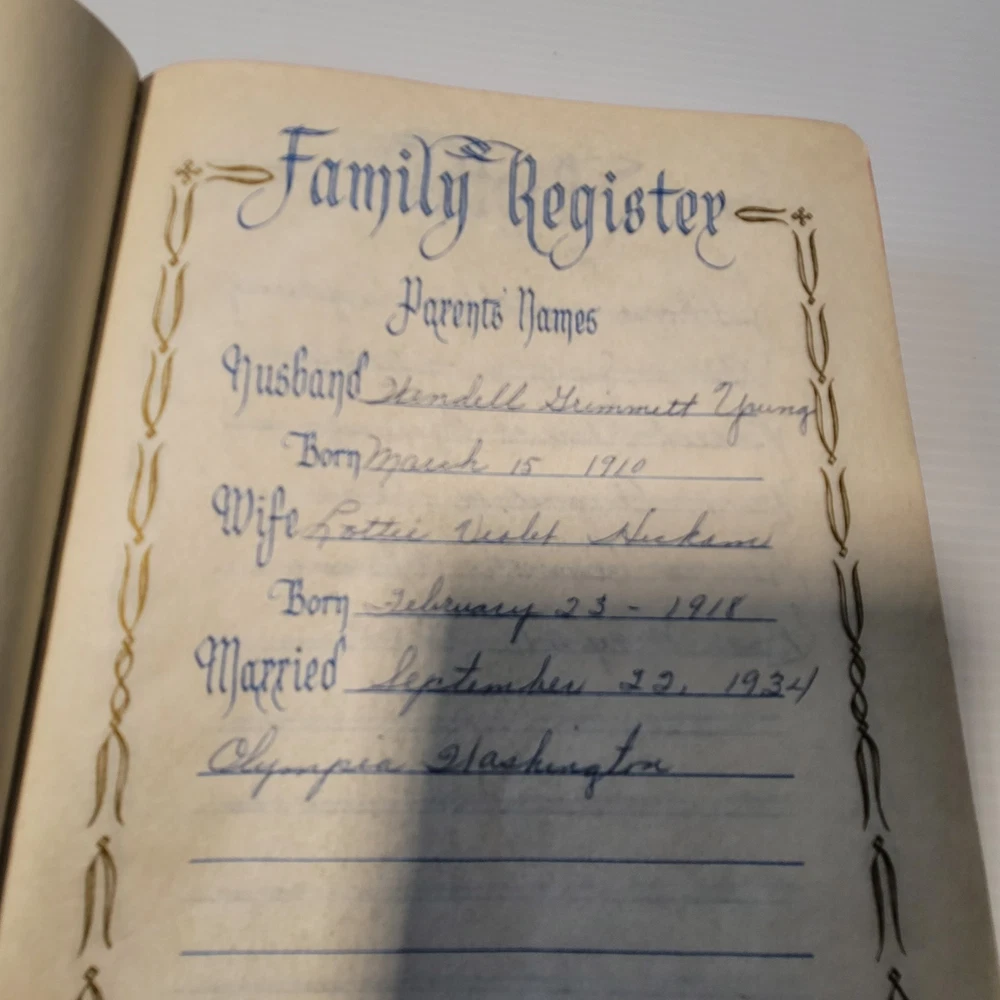 Family Register
Parents' Names
Husband Wendell Grimmett Young
Born March 15 1910
Wife Lottie Violet Hickam
Born February 23 - 1918
Married September 22, 1934
Olympia Washington